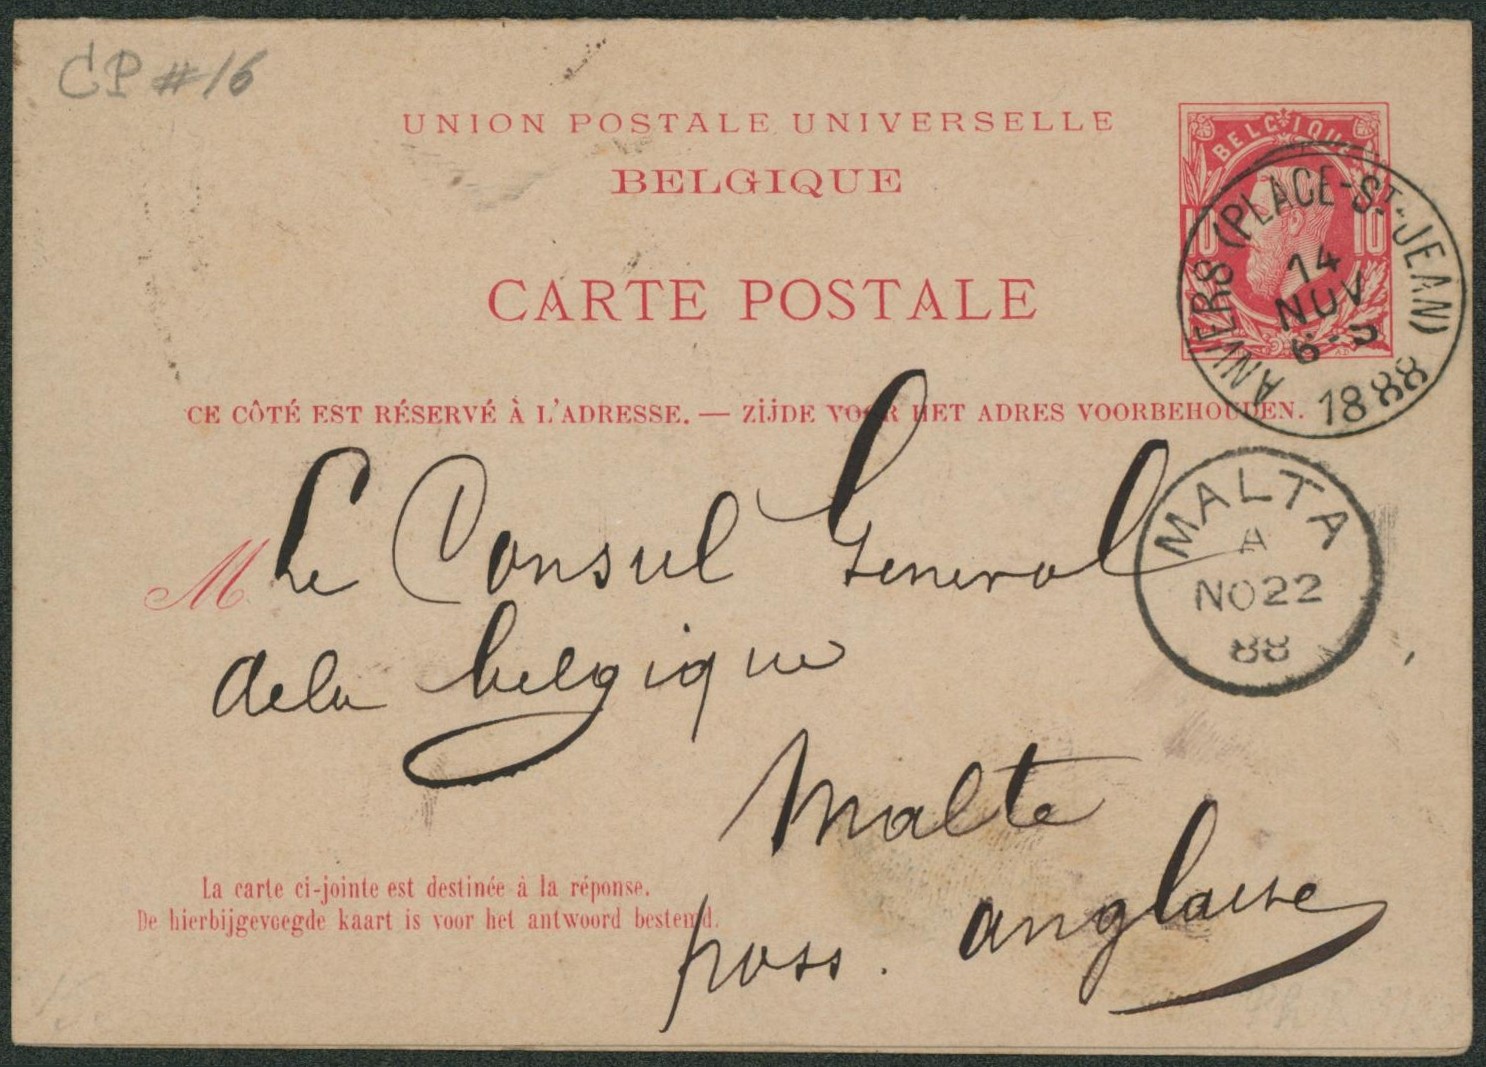 CP #16
UNION POSTALE UNIVERSELLE
BELGIQUE
CARTE POSTALE
BELGIQUE
10 10
ANVERS (PLACE-ST-JEAN)
14
NOV
1888
CE CÔTÉ EST RÉSERVÉ À L'ADRESSE. — ZIJDE VOOR HET ADRES VOORBEHOUDEN.
MALTA
A
NO22
88
M Le Consul General
dela belgique
Malte
poss. anglaise
La carte ci-jointe est destinée à la réponse.
De hierbijgevoegde kaart is voor het antwoord bestemd.